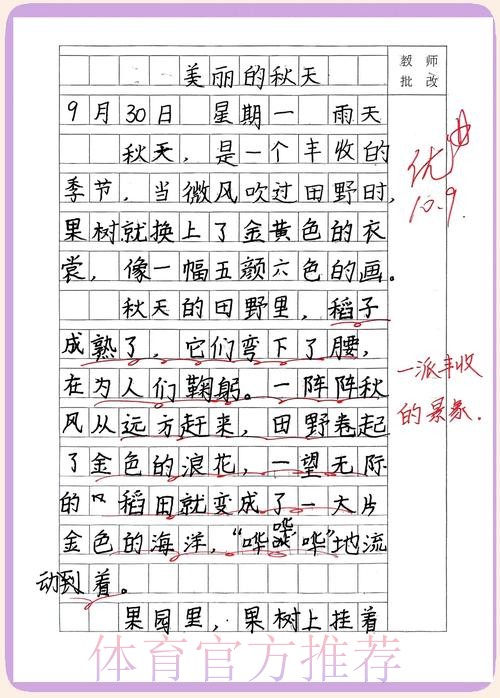 教师
批改
美丽的秋天
9月30日 星期一 雨天
秋天，是一个丰收的
季节，当微风吹过田野时，
果树就换上了金黄色的衣
裳，像一幅五颜六色的画。
秋天的田野里，稻子
成熟了，它们弯下了腰，
在为人们鞠躬。一阵阵秋
风从远方赶来，田野卷起
了金色的浪花，一望无际
的稻田就变成了一大片
金色的海洋，“哗哗哗”地流
动到着。
果园里，果树上挂着
优
10.9.
一派丰收
的景象.
体育官方推荐